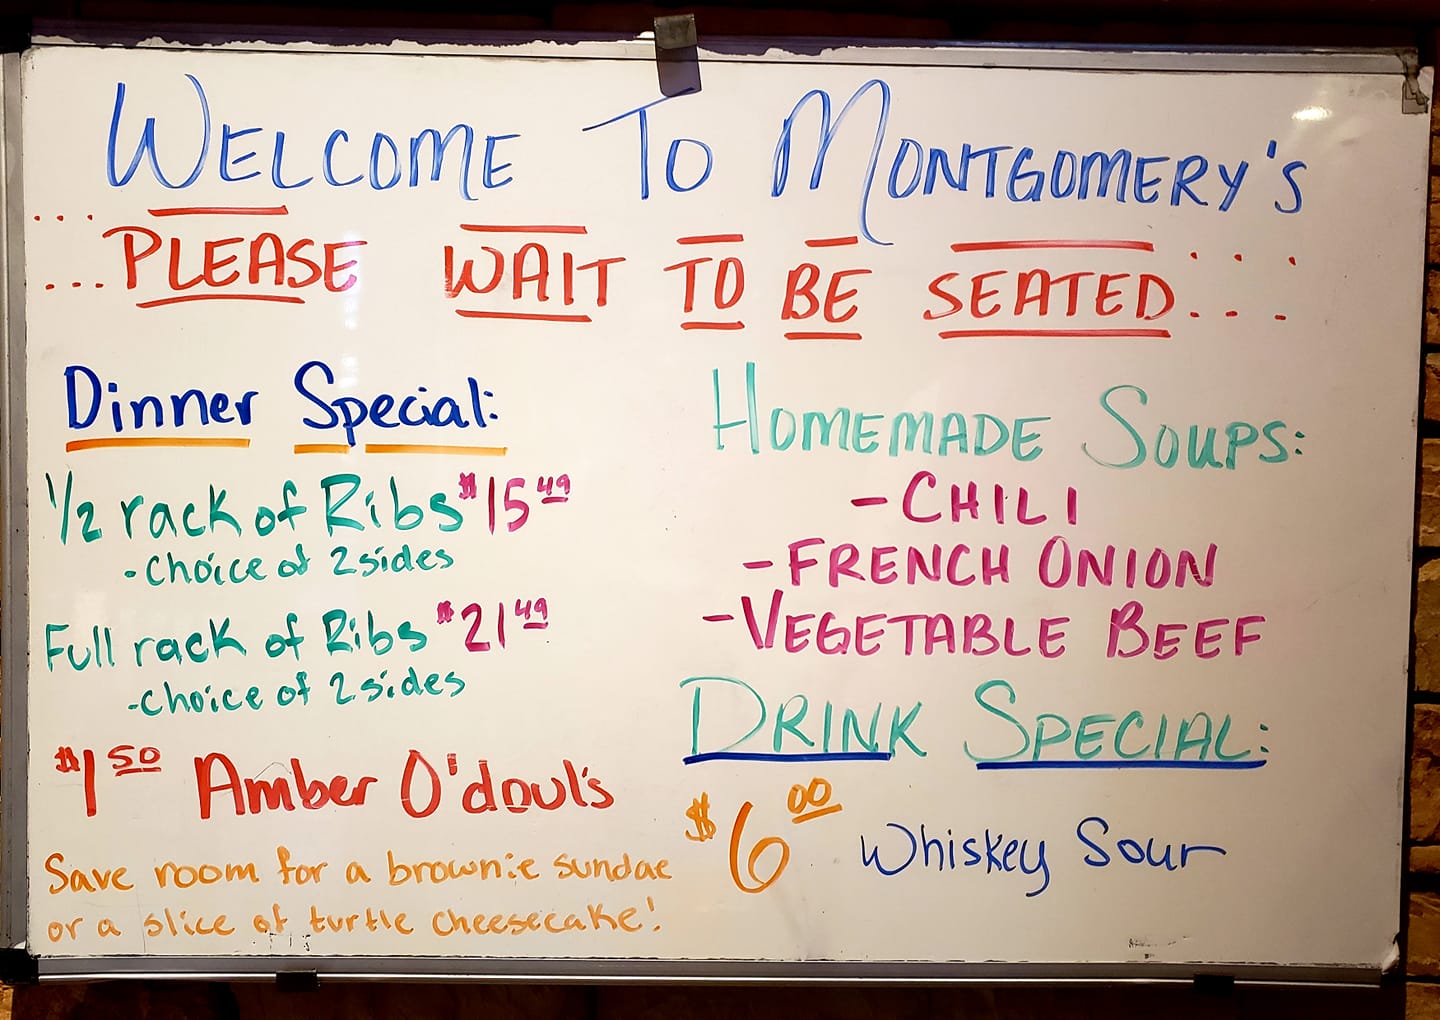 WELCOME TO MONTGOMERY'S
...PLEASE WAIT TO BE SEATED...
Dinner Special:
1/2 rack of Ribs $15.49
- Choice of 2 sides
Full rack of Ribs $21.49
- choice of 2 sides
$1.50 Amber O'doul's
Save room for a brownie sundae
or a slice of turtle cheesecake!
HOMEMADE SOUPS:
- CHILI
- FRENCH ONION
- VEGETABLE BEEF
DRINK SPECIAL:
$6.00 Whiskey Sour